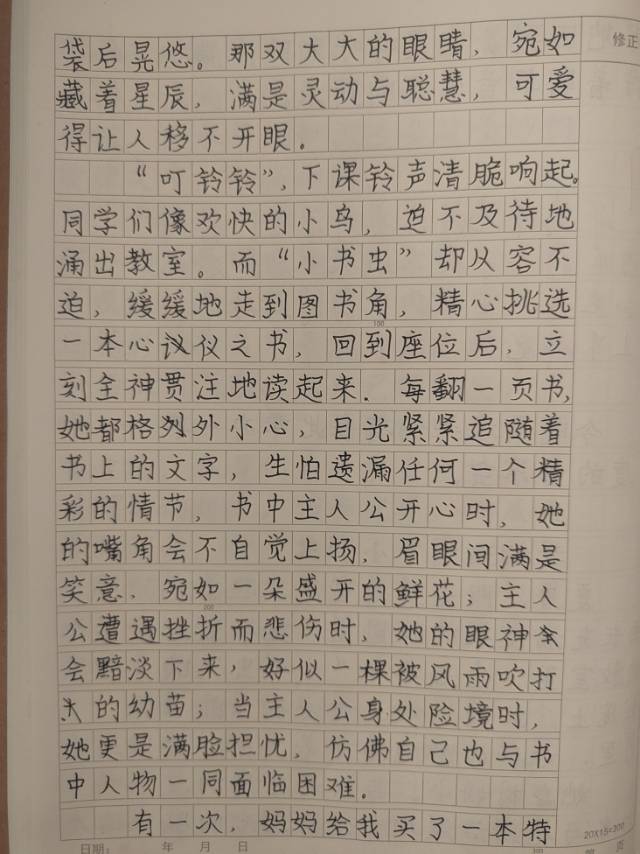 修正
袋后晃悠。那双大大的眼睛，宛如
藏着星辰，满是灵动与聪慧，可爱
得让人移不开眼.
“叮铃铃”，下课铃声清脆响起。
同学们像欢快的小鸟，迫不及待地
涌出教室。而“小书虫”却从容不
迫，缓缓地走到图书角，精心挑选
100
一本心议仪之书，回到座位后，立
刻全神贯注地读起来.每翻一页书，
她都格外小心，目光紧紧追随着
书上的文字，生怕遗漏任何一个精
彩的情节，书中主人公开心时，她
的嘴角会不自觉上扬，眉眼间满是
笑意，宛如一朵盛开的鲜花；主人
200
公遭遇挫折而悲伤时，她的眼神
会黯淡下来，好似一棵被风雨吹打
的幼苗；当主人公身处险境时，
她更是满脸担忧，仿佛自己也与书
中人物一同面临困难.
有一次，妈妈给我买了一本特
20X15=300
日期： 年 月 日 页